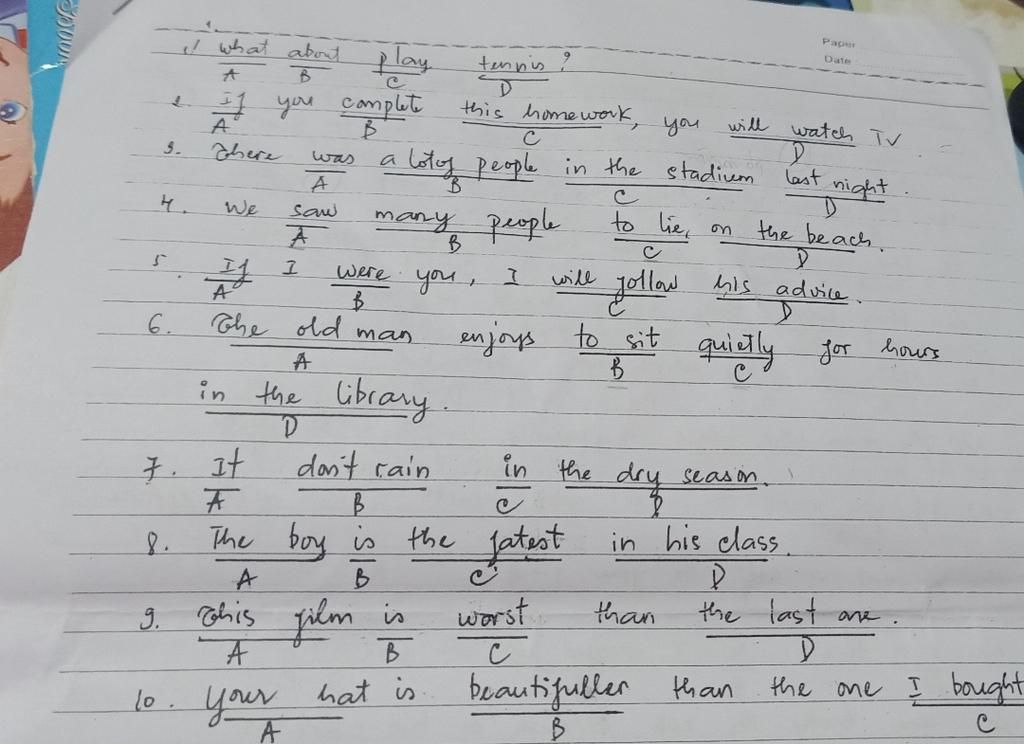 Paper
Date
1/ What about play tennis?
A B C D
2. If you complete this homework, you will watch TV.
A B C D
3. There was a lot of people in the stadium last night.
A B C D
4. We saw many people to lie, on the beach.
A B C D
5. If I were you, I will follow his advice.
A B C D
6. The old man enjoys to sit quietly for hours
A B C
in the library.
D
7. It don't rain in the dry season.
A B C D
8. The boy is the fatest in his class.
A B C D
9. This film is worst than the last one.
A B C D
10. Your hat is beautifuller than the one I bought
A B C